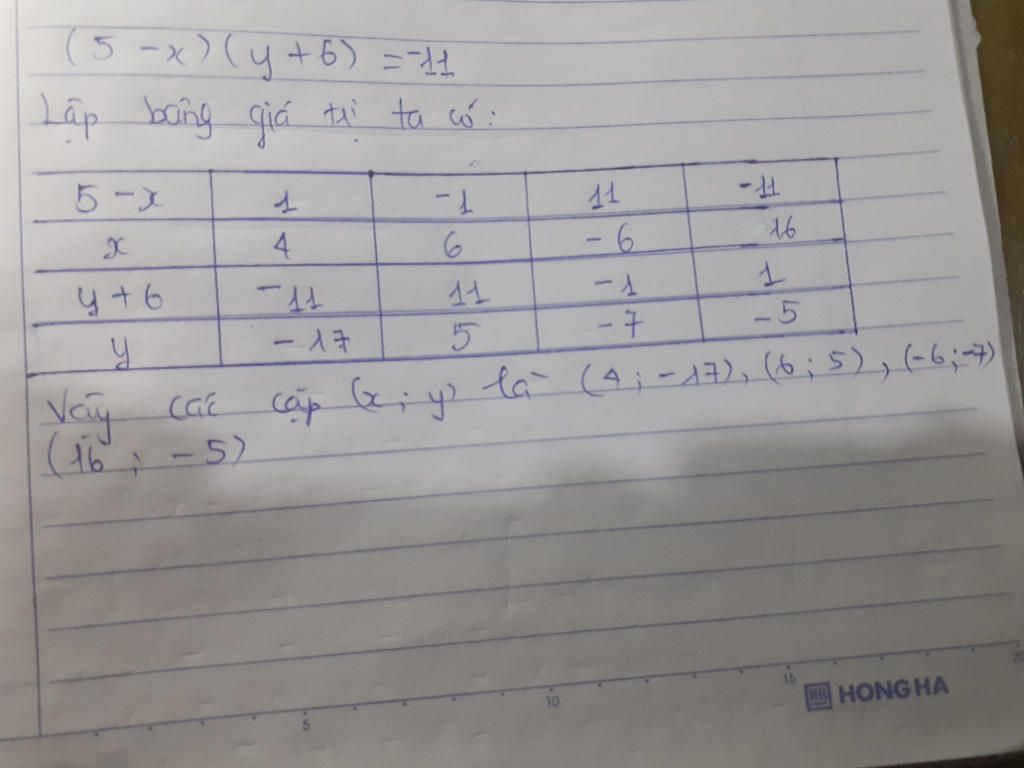 (5 - x)(y + 6) = -11
Lập bảng giá trị ta có:
5 - x 1 -1 11 -11
x 4 6 -6 16
y + 6 -11 11 -1 1
y -17 5 -7 -5
Vậy các cặp (x; y) là (4; -17), (6; 5), (-6; -7)
(16; -5)
5 10 15 20
HH HONG HA